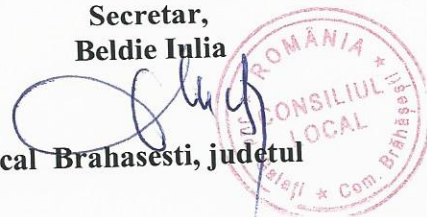 Secretar,
Beldie Iulia
cal Brahasesti, judetul
ROMÂNIA
CONSILIUL
LOCAL
Com. Brăhășești